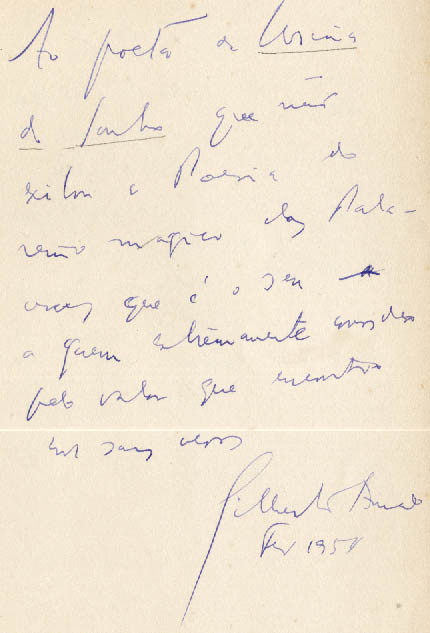 Ao poeta de Usina
do Sonho que não
exilou a Poesia do
reino magico das Pala-
vras, que é o seu
a quem extremamente
pelo valor que encontro
em seus versos
Gilberto Amado
Fev 195